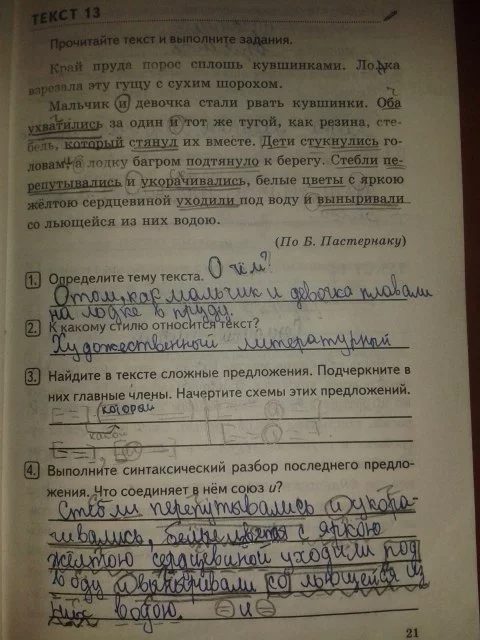 ТЕКСТ 13
Прочитайте текст и выполните задания.
Край пруда порос сплошь кувшинками. Лодка
врезала эту гущу с сухим шорохом.
Мальчик и девочка стали рвать кувшинки. Оба
ухватились за один и тот же тугой, как резина, сте-
бель, который стянул их вместе. Дети стукнулись го-
ловами, а лодку багром подтянуло к берегу. Стебли пе-
репутывались и укорачивались, белые цветы с яркою
жёлтою сердцевиной уходили под воду и выныривали
со льющейся из них водою.
(По Б. Пастернаку)
1. Определите тему текста. О чём?
О том, как мальчик и девочка плавали
на лодке в пруду.
2. К какому стилю относится текст?
Художественный литературный
3. Найдите в тексте сложные предложения. Подчеркните в
них главные члены. Начертите схемы этих предложений.
который
какой
4. Выполните синтаксический разбор последнего предло-
жения. Что соединяет в нём союз и?
Стебли перепутывались и укора-
чивались, белые цветы с яркою
жёлтою сердцевиной уходили под
воду и выныривали со льющейся из
них водою.
21